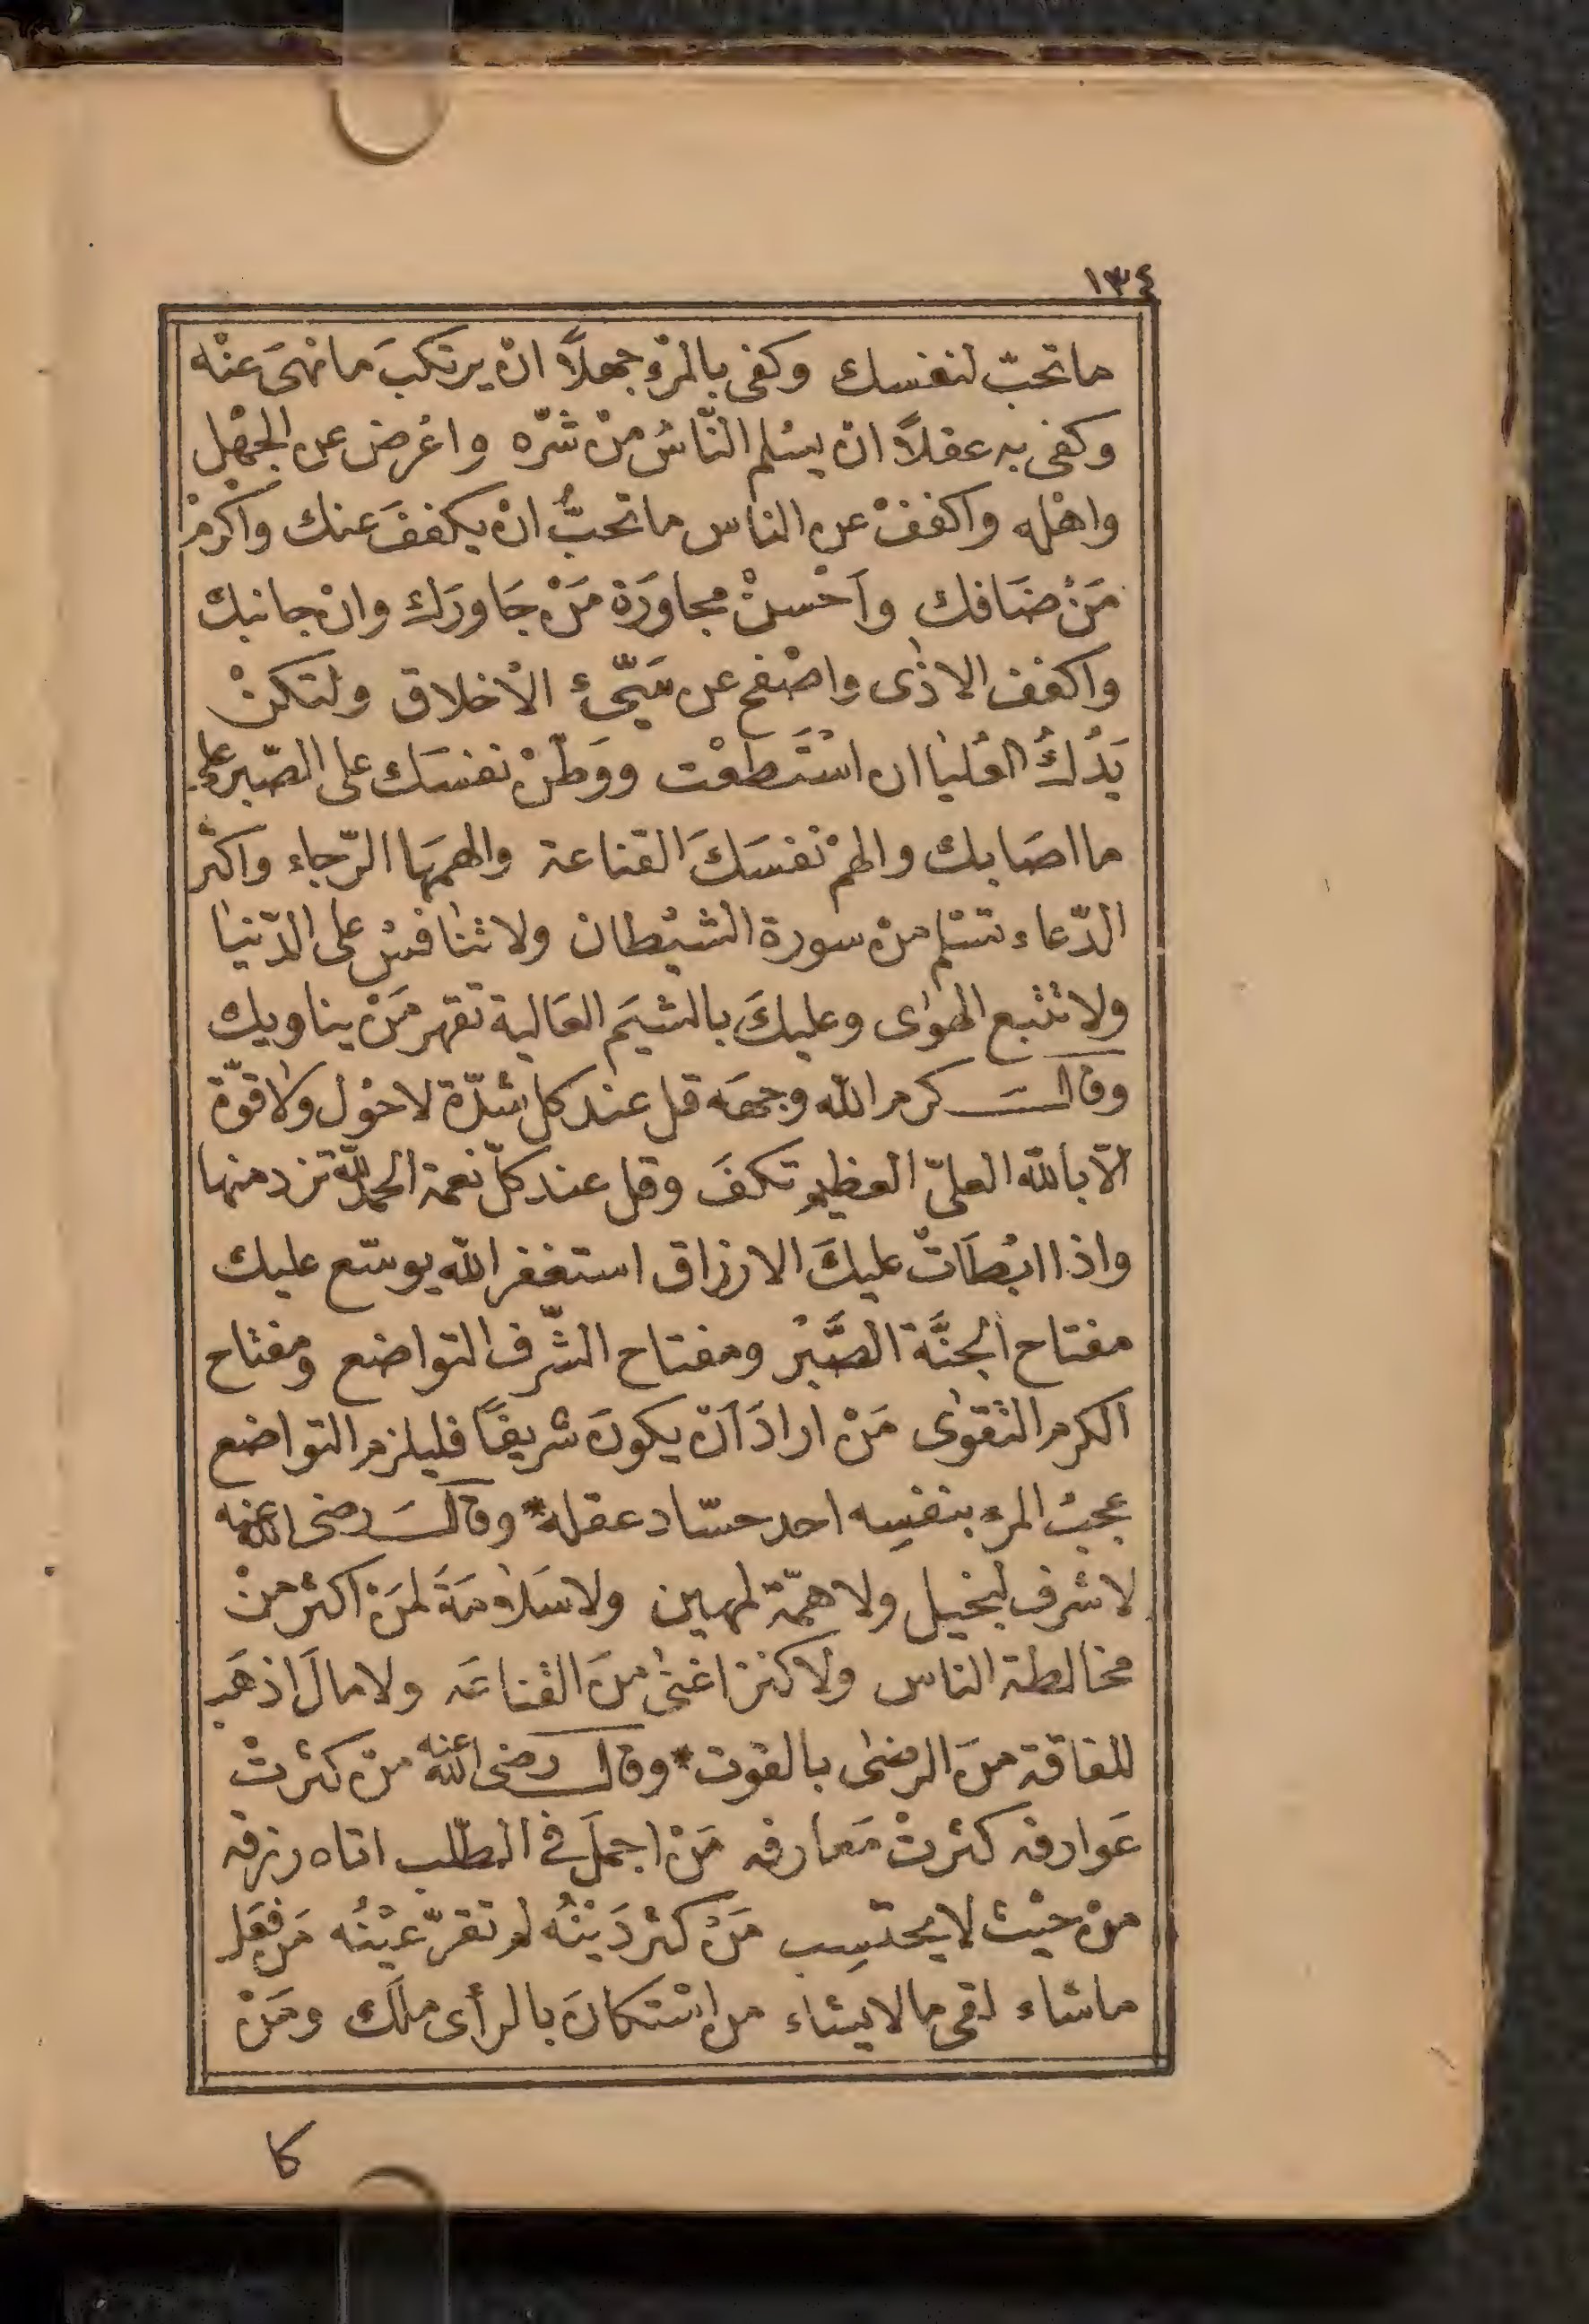 ١٣٤
ما تحبّ لنفسك وكفى بالمرء جهلاً انْ يرتكبَ ما نهىَ عنْه
وكفى به عقلاً انْ يسْلم النّاسُ منْ شرّه واعْرض عن الجهْل
واهْله واكففْ عن الناس ما تحبُّ انْ يكففَ عنك واكرمْ
مَنْ ضَافك واَحْسنْ مجاوَرَة مَنْ جَاورَك وانْ جانبك
واكفف الاذٰى واصْفح عن سَيّئ الاْخلاق ولتكنْ
يَدُكُ العُليٰا ان اسْتَطعْت ووَطّنْ نفسَك على الصّبر على
ما اصَابك والهمْ نفسَكَ القناعة والهمهَا الرّجاء واكثر
الدّعاء تسْلم منْ سورة الشيْطان ولا تنٰافسْ على الدّنيٰا
ولا تتْبع الهوٰى وعليكَ بالشيَم العَالية تقهر مَنْ يناويك
وقالَ كرم الله وجهَه قل عند كل شدّة لا حوْل ولا قوّة
الاّ بالله العليّ العظيم تكفَ وقل عند كلّ نعمة الحمد لله تزد منها
واذا ابْطَاتْ عليكَ الارزاق استغفر الله يوسّع عليك
مفتاح الجنَّة الصَّبْر ومفتاح الشّرف التواضع ومفتاح
الكرم التقوٰى مَنْ ارادَ اَنْ يكونَ شريفًا فليلزم التواضع
عجبُ المرء بنفسِه احد حسّاد عقله* وقالَ رضى الله عنه
لا شرف لبخيل ولا همّة لمهين ولا سَلاٰمَةَ لمَنْ اكثر منْ
مخالطة الناس ولا كنز اغنىٰ منَ القْناعَه ولا مالَ اذهَب
للفاقة منَ الرضىٰ بالقوت* وقال رضى الله عنه منْ كثرتْ
عَوارفه كثرتْ مَعارفه مَنْ اجملَ فى الطّلب اتاه رزقه
منْ حيْث لا يحتسِب مَنْ كثر دَيْنُه لم تقرّ عيْنُه مَن فعَل
ما شاء لقى ما لا يشاء من اسْتكانَ بالرأى ملَك ومَنْ
كا